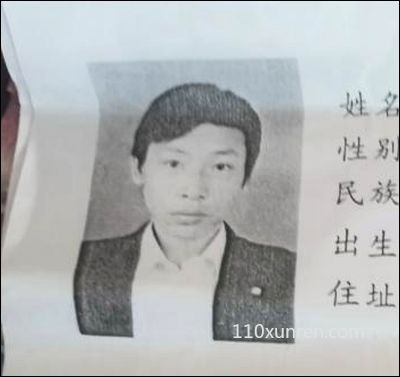 姓名
性别
民族
出生
住址
110xunren.com